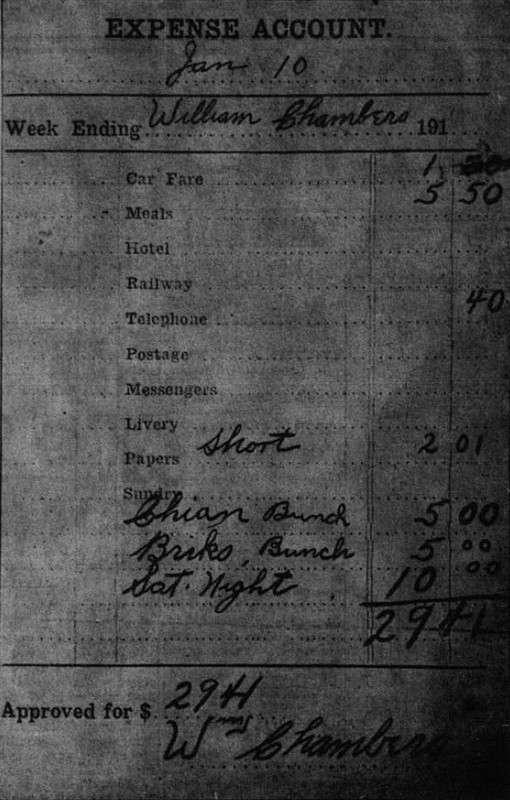 EXPENSE ACCOUNT.
Jan 10
Week Ending William Chambers 191
Car Fare 1 50
Meals 5 50
Hotel
Railway
Telephone 40
Postage
Messengers
Livery
Papers Short 2 01
Sundry
Chian Bunch 5 00
Briks Bunch 5 00
Sat. Night 10 00
29 41
Approved for $ 2941
Wm Chambers